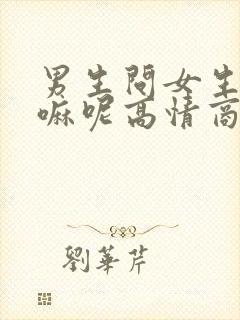 男生問女生
嘛呢高情商
劉華芹